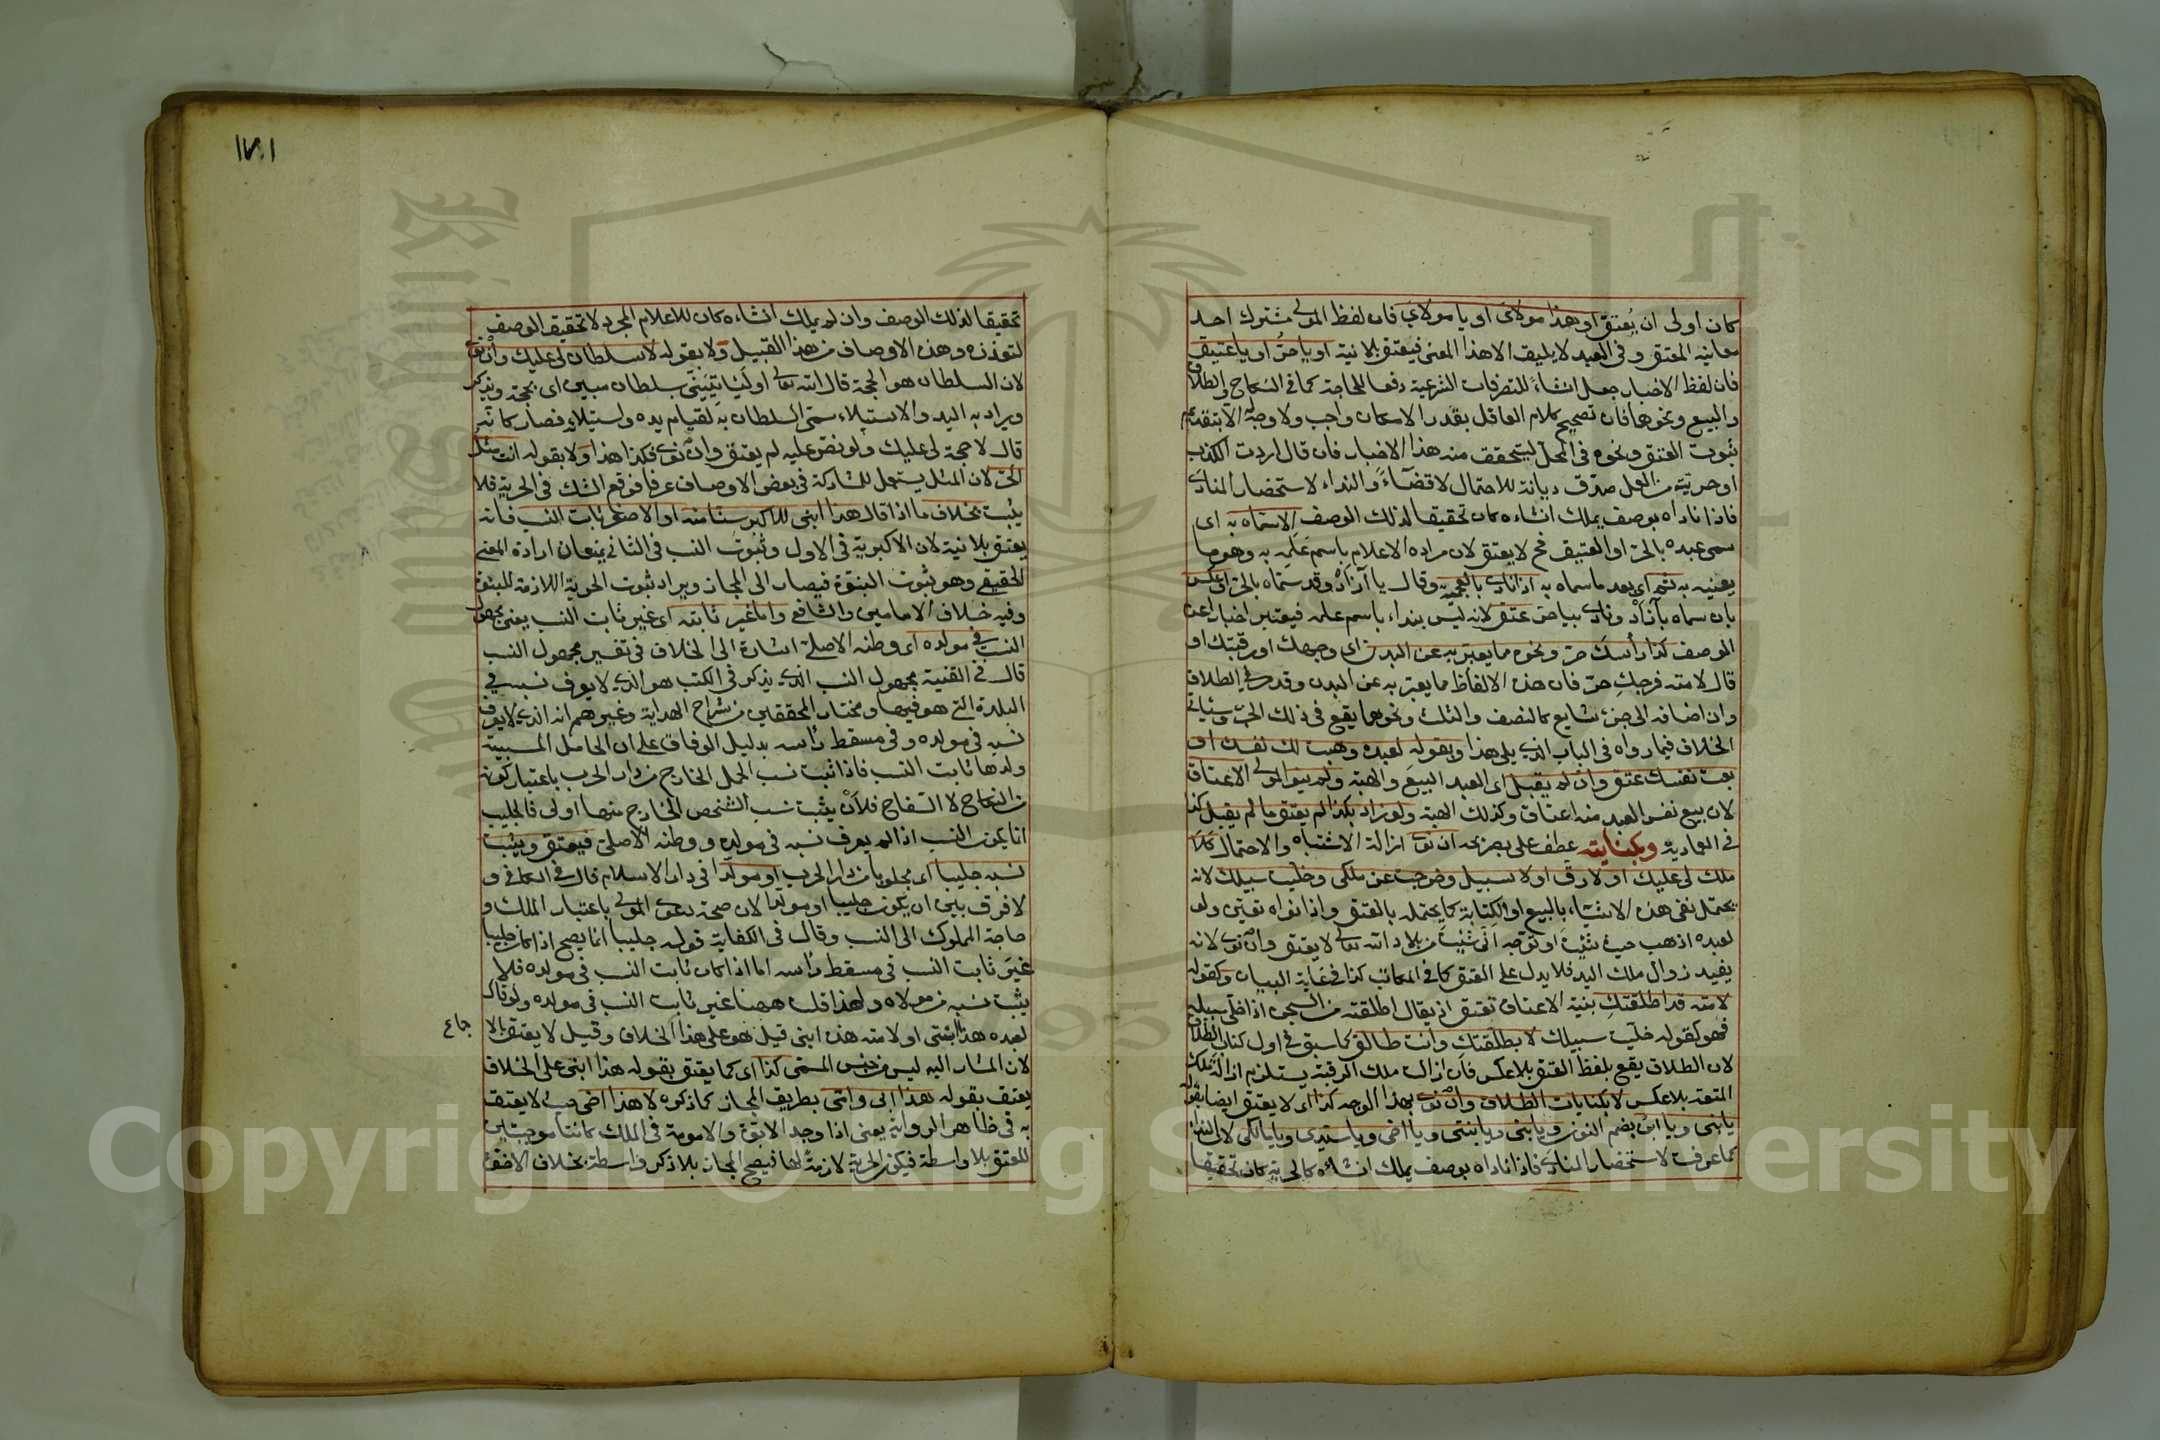 كان اولى ان يُعتق او هذا مولاى او يا مولاي فان لفظ المولى مشترك احد
معانيه المعتق وفى العبد لا يليق الا هذا المعنى فيعتق بلا نية او يا حرُّ او يا عتيق
فان لفظ الاخبار جعل انشاءً للتصرفات الشرعية دفعا للحاجة كما فى النكاح والطلاق
والبيع ونحوها فان تصحيح كلام العاقل بقدر الامكان واجب ولا وجه الا بتقديم
ثبوت العتق ونحوه فى المحل ليتحقق منه هذا الاخبار فان قال اردت الكذب
او حريته من العمل صدّق ديانة للاحتمال لا قضآءً والنداء لاستحضار المنادى
فاذا ناداه بوصف يملك انشاءه كان تحقيقا لذلك الوصف الا سماه به اى
سمى عبده بالحر او العتيق فح لا يعتق لان مراده الاعلام باسم عَلَمِه به وهو ما
يعنيه به ثم اى بعد ما سماه به اذا نادى بالعجمية وقال يا آزادْ وقد سمّاه بالحر او عكس
بان سماه بآزادْ ونادى بيا حر عتق لانه ليس بنداء باسم علمه فيعتبر اخبارا عن
الوصف كذا رأسك حر ونحوه مما يعبر به عن البدن اى وجهك او رقبتك او
قال لامته فرجكِ حرّ فان هذه الالفاظ مما يعبر به عن البدن وقد مر فى الطلاق
وان اضافه الى جزء شايع كالنصف والثلث ونحوهما يقع فى ذلك الجزء وسياتى
الخلاف فيما رواه فى الباب الذى يلى هذا وبقوله لعبده وهبت لك نفسك او
بعت نفسك عتق وان لم يقبل اى العبد البيعَ والهبة ولم ينو المولى الاعتاق
لان بيع نفس العبد منه اعتاق وكذلك الهبة ولو زاد بكذا لم يعتق ما لم يقبل كذا
فى العمادية وبكنايته عطف على بصريحه ان نوى ازالة الاشتباه والاحتمال كلا
ملك لى عليك او لا رق او لا سبيل وخرجت عن ملكى وخليت سبيلك لانه
يحتمل نفى هذه الاشياء بالبيع او الكتابة كما يحتمله بالعتق واذا نواه تعيّن ولو قال
لعبده اذهب حيث شئتَ او توجّه انّى شئتَ من بلاد الله تعالى لا يعتق وان نوى لانه
يفيد زوال ملك اليد فلا يدل على العتق كما فى المكاتب كذا فى غاية البيان وكقوله
لامته قد اطلقتك بنية الاعتاق تعتق اذ يقال اطلقته من السجن اذا خلى سبيله
فهو كقوله خليت سبيلك لا بطلقتك وانت طالق كما سبق فى اول كتاب الطلاق
لان الطلاق يقع بلفظ العتق بلا عكس فان ازالة ملك الرقبة يستلزم ازالة ملك
المتعة بلا عكس لا بكنايات الطلاق وان نوى بهذا الوجه كذا اى لا يعتق ايضا بقوله
يا بنى ويا ابن بضم النون ويا بنى ويا بنتى ويا اخى ويا سيدى ويا مالكى لان النداء
كما عرفت لاستحضار المنادى فاذا ناداه بوصف يملك انشاءه كالحرية كان تحقيقا
١٧٠١
تحقيقا لذلك الوصف وان لم يملك انشاءه كان للاعلام المجرد لا تحقيق الوصف
لتعذره وهذه الاوصاف من هذا القبيل ولا بقوله لا سلطان لى عليك وان نوى
لان السلطان هو الحجة قال الله تعالى او لَيَاتِيَنِّى بسلطان مبين اى بحجة ويذكر
ويراد به اليد والاستيلاء سمى السلطان به لقيام يده واستيلائه فصار كانه
قال لا حجة لى عليك ولو نص عليه لم يعتق وان نوى فكذا هذا ولا بقوله انت مثل
الحرّ لان المثل يستعمل للمشاركة فى بعض الاوصاف عرفا فوقع الشك فى الحرية فلا
يثبت بخلاف ما اذا قال هذا ابنى للاكبر سنا منه او الاصغر ثابت النسب فانه
يعتق بلا نية لان الاكبرية فى الاول وثبُوتَ النسب فى الثانى يمنعان ارادة المعنى
الحقيقى وهو ثبوت البنوّة فيصار الى المجاز ويراد ثبوت الحرية اللازمة للبنوة
وفيه خلاف الامامين والشافعى واما غير ثابته اى غير ثابت النسب يعنى مجهول
النسب فى مولده اى وطنه الاصلى اشارة الى الخلاف فى تفسير مجهول النسب
قال فى القنية مجهول النسب الذى يذكر فى الكتب هو الذى لا يعرف نسبه فى
البلدة التى هو فيها ومختار المحققين من شراح الهداية وغيرهم انه الذى لا يعرف
نسبه فى مولده وفى مسقط راسه بدليل الوفاق على ان الحامل المسبية
ولدها ثابت النسب فاذا ثبت نسب الحمل الخارج من دار الحرب باعتبار كونه
من النكاح لا السفاح فلأنْ يثبت نسب الشخص الخارج منها اولى فالجليب
انما يكون النسب اذا لم يعرف نسبه فى مولده ووطنه الاصلى فيعتق ويثبت
نسبه جليبا اى مجلوبا من دار الحرب او مولّدا فى دار الاسلام قال فى الكافى و
لا فرق بين ان يكون جليبا او مولدا لان صحة دعوى المولى باعتبار الملك و
حاجة المملوك الى النسب وقال فى الكفاية قوله جليبا انما يصح اذا كان جليبا
غيرَ ثابت النسب فى مسقط راسه اما اذا كان ثابت النسب فى مولده فلا
يثبت نسبه من مولاه ولهذا قلت ههنا غير ثابت النسب فى مولده ولو قال
لعبده هذا بنتى او لامته هذه ابنى قيل هو على هذا الخلاف وقيل لا يعتق بالا
جماع
لان المشار اليه ليس من جنس المسمى كذا اى كما يعتق بقوله هذا ابنى على الخلاف
يعتق بقوله هذا ابى وامى بطريق المجاز كما ذكره لا هذا اخى حيث لا يعتق
به فى ظاهر الرواية يعنى اذا وجد الابوة والامومة فى الملك كانتا موجبتين
للعتق بلا واسطة فيكون الحرية لازمة لهما فيصح المجاز بلا ذكر واسطة بخلاف الاخوّة